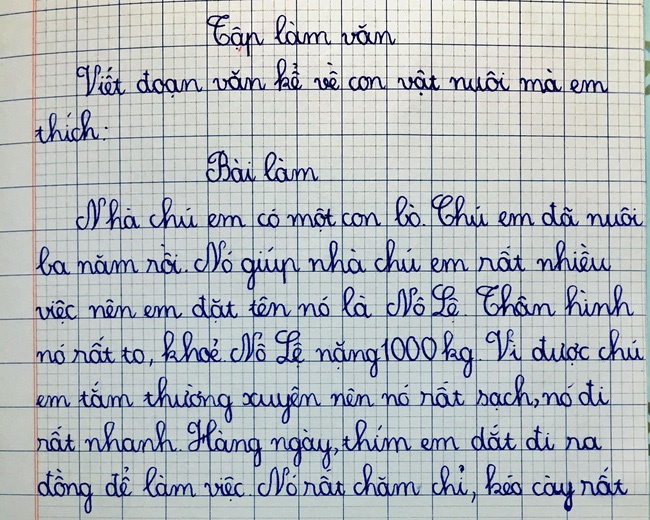 Tập làm văn
Viết đoạn văn kể về con vật nuôi mà em
thích.
Bài làm
Nhà chú em có một con bò. Chú em đã nuôi
ba năm rồi. Nó giúp nhà chú em rất nhiều
việc nên em đặt tên nó là Nô Lệ. Thân hình
nó rất to, khoẻ. Nô Lệ nặng 1000 kg. Vì được chú
em tắm thường xuyên nên nó rất sạch, nó đi
rất nhanh. Hàng ngày, thím em dắt đi ra
đồng để làm việc. Nó rất chăm chỉ, kéo cày rất